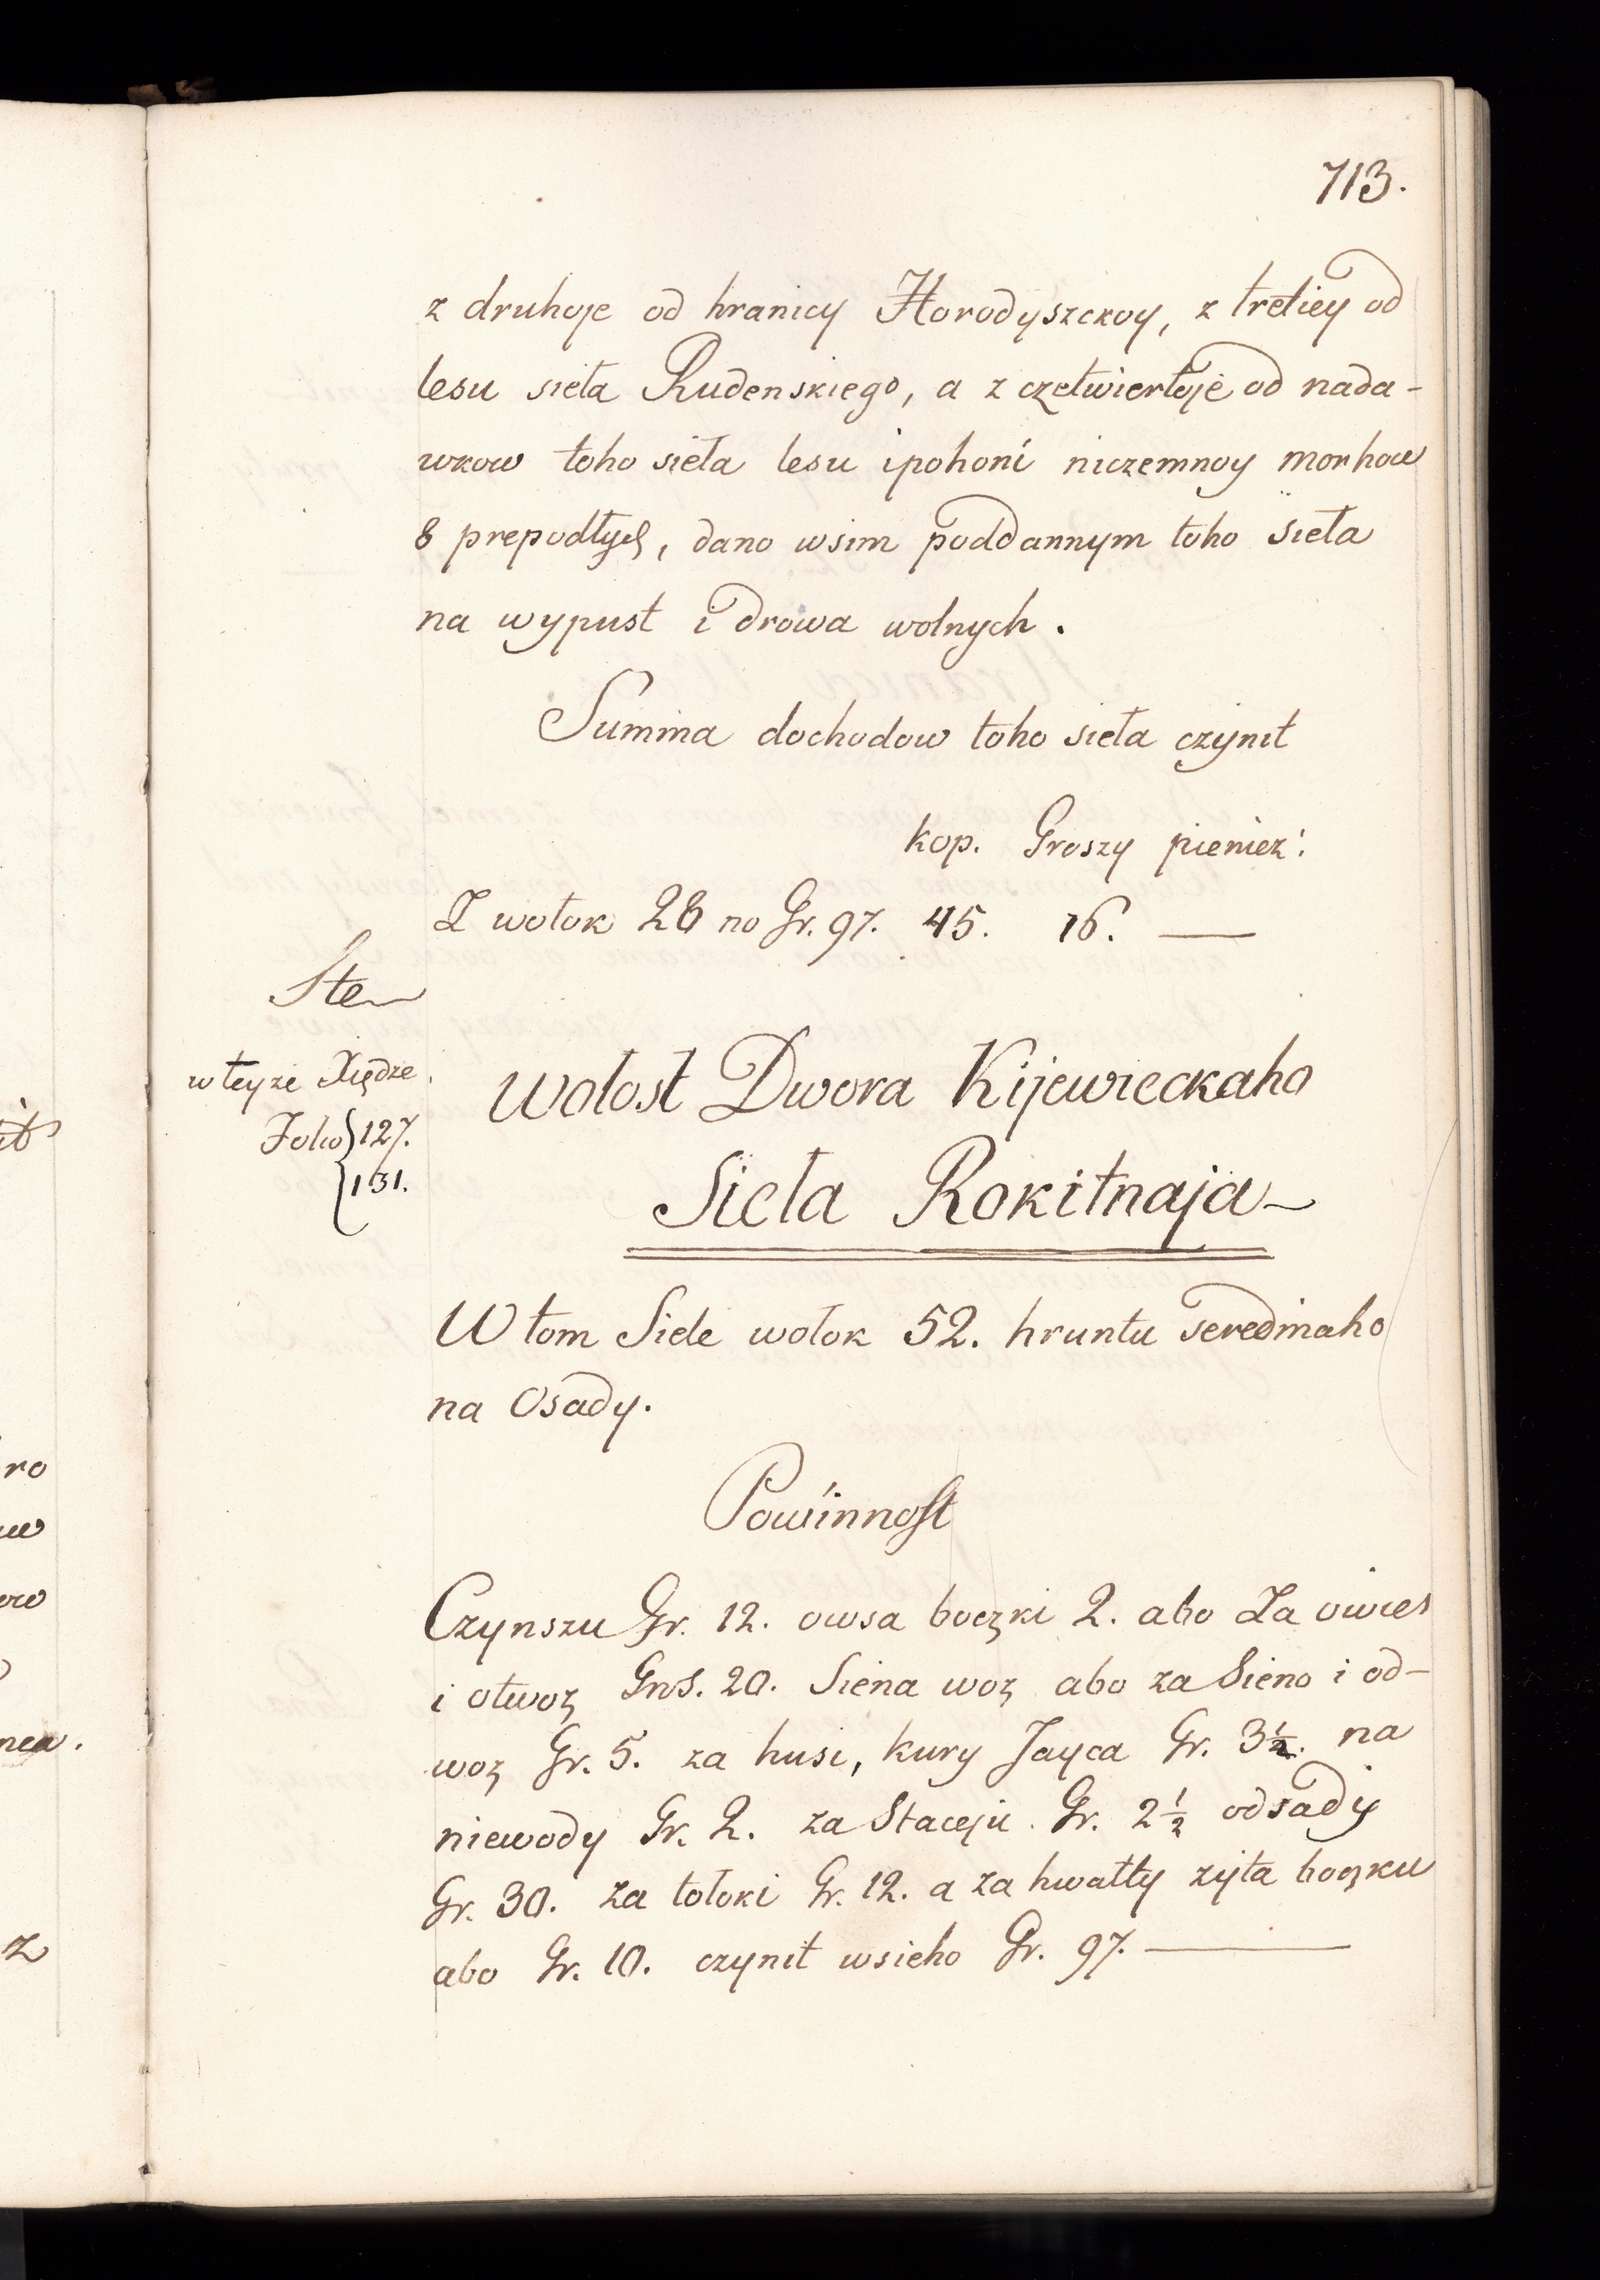 713.
z druhoje od hranicy Horodyszczoy, z tretiey od
lesu sieła Rudenskiego, a z czetwiertoje od nada-
wkow toho sieła lesu i pohoni niczemnoy morhow
8 prepodłych, dano wsim poddannym toho sieła
na wypust i drowa wolnych.
Summa dochodow toho sieła czynit
kop. Groszy pieniez:
Z wołok 28 no Gr. 97. 45. 16. —
Ste
w teyże Xiędze
Folio } 127.
{ 131.
Wołost Dwora Kijewieckaho
Sieła Rokitnaja
W tom Siele wołok 52. hruntu seredniaho
na Osady.
Powinnost
Czynszu Gr. 12. owsa boczki 2. abo Za owies
i otwoz Gros. 20. Siena woz abo za Sieno i od-
woz Gr. 5. za husi, kury Jayca Gr. 3½. na
niewody Gr. 2. za Stacyju Gr. 2½ odsady
Gr. 30. za tołoki Gr. 12. a za hwałty żyta boczku
abo Gr. 10. czynit wsieho Gr. 97. —
it
ro
ow
z